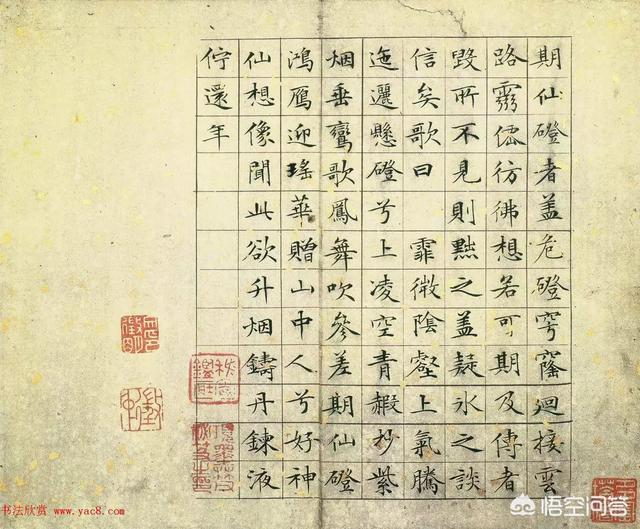 期仙磴者盖危磴穹窿迴接雲
路靈僊彷彿想若可期及儒者
毀所不見則黜之盖疑氷之談
信矣歌曰 霏微陰壑上氣騰
迤邐懸磴兮上凌空青赮杪紫
烟垂鸞歌鳳舞吹參差期仙磴
鴻鴈迎瑤華贈山中人兮好神
仙想像聞此欲升烟鑄丹鍊液
佇還年
书法欣赏 www.yac8.com
悟空问答